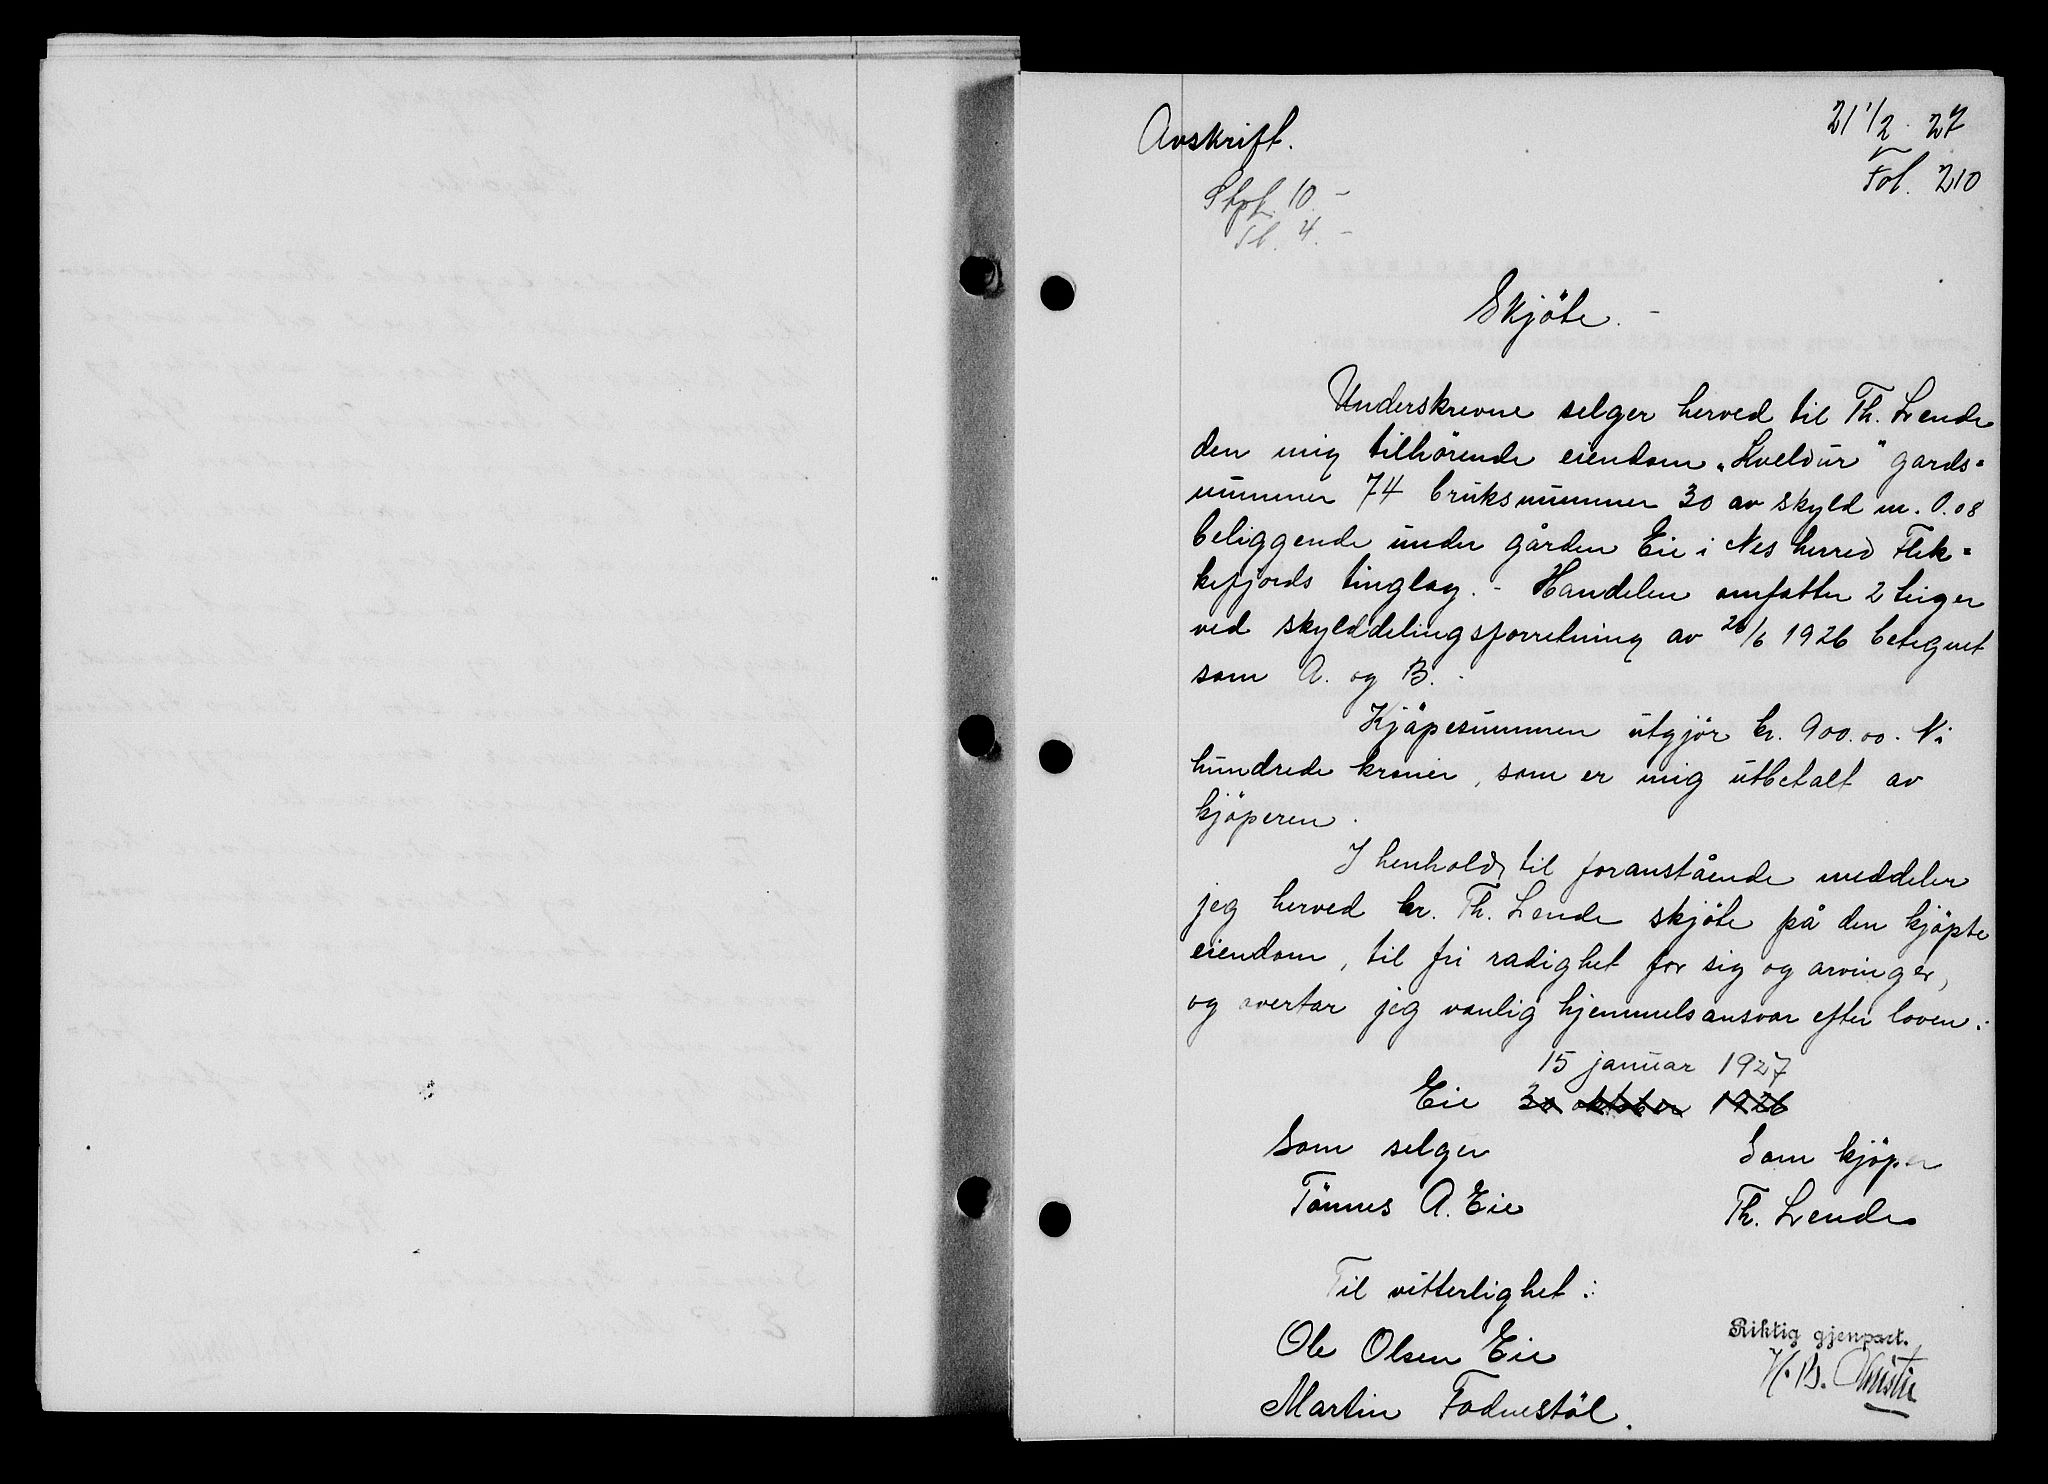 Avskrift.
21 1/2 - 27
Fol. 210
Stpl. 10.-
Tl. 4.-
Skjöte.-
Underskrevne selger herved til Th. Lende
den mig tilhörende eiendom „Kveldur" gards=
nummer 74 bruksnummer 30 av skyld m. 0.08
beliggende under gården Eie i Nes herred Flek=
kefjords tinglag. - Handelen omfatter 2 teiger
ved skylddelingsforretning av 26/6 1926 betegnet
som A. og B. -
Kjöpesummen utgjör kr. 900.00. Ni
hundrede kroner, som er mig utbetalt av
kjöperen.
I henhold til foranstående meddeler
jeg herved hr. Th. Lende skjöte på den kjöpte
eiendom, til fri radighet for sig og arvinger,
og overtar jeg vanlig hjemmelsansvar efter loven.:
15 januar 1927
Eie 30 oktober 1926
Som selger Som kjöper
Tönnes A. Eie Th. Lende
Til vitterlighet:
Ole Olsen Eie
Riktig gjenpart.
H. B. Christie
Martin Fodnestöl.